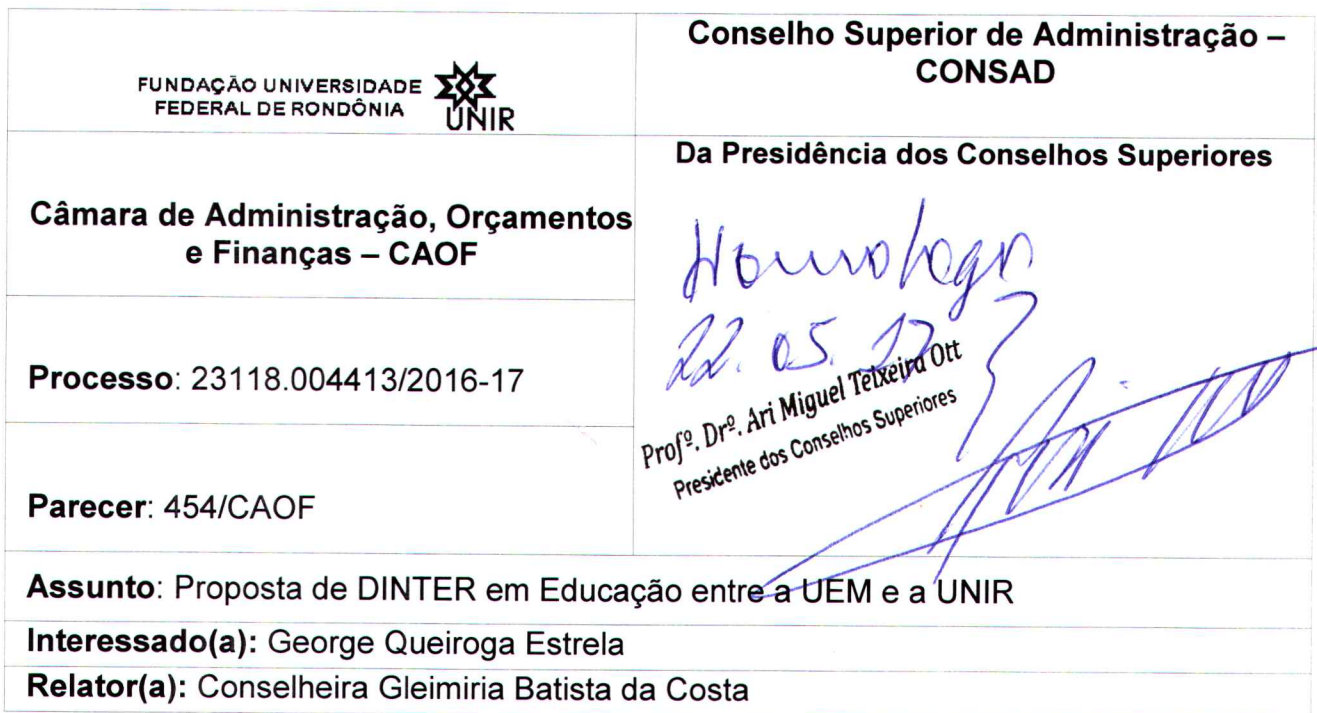 FUNDAÇÃO UNIVERSIDADE
FEDERAL DE RONDÔNIA
UNIR
Conselho Superior de Administração –
CONSAD
Câmara de Administração, Orçamentos
e Finanças – CAOF
Processo: 23118.004413/2016-17
Parecer: 454/CAOF
Da Presidência dos Conselhos Superiores
Homologo
22.05.17
Profº. Drº. Ari Miguel Teixeira Ott
Presidente dos Conselhos Superiores
Assunto: Proposta de DINTER em Educação entre a UEM e a UNIR
Interessado(a): George Queiroga Estrela
Relator(a): Conselheira Gleimiria Batista da Costa